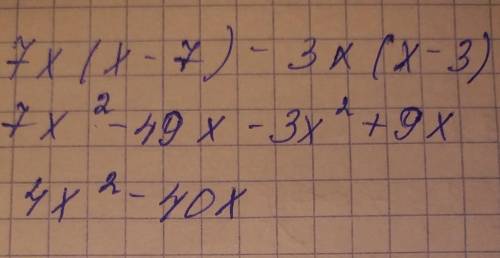 7x(x-7)-3x(x-3)
7x²-49x-3x²+9x
4x²-40x